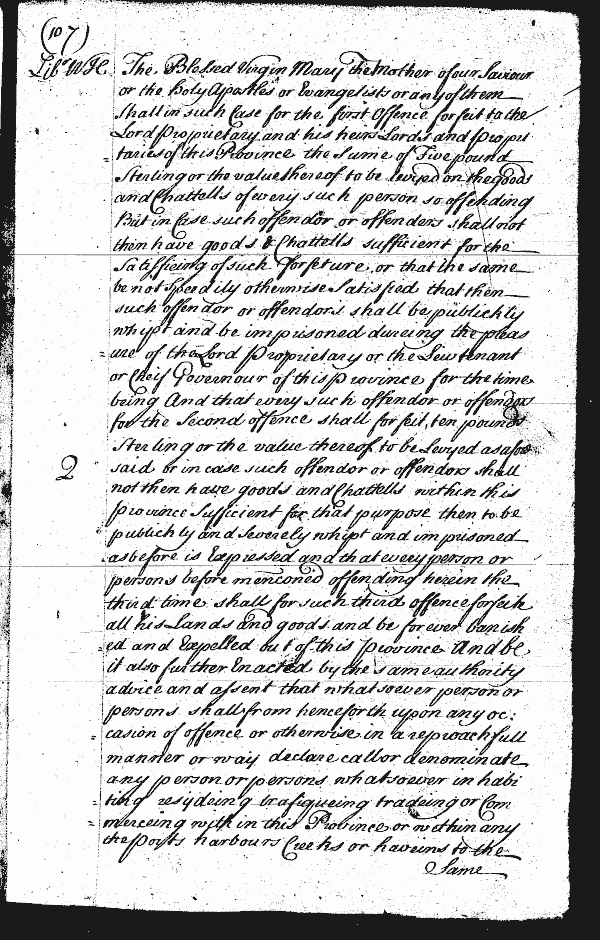 (107)
Libr W H. The Blessed Virgin Mary the Mother of our Saviour
or the holy Apostles or Evangelists or any of them
Shall in such Case for the first Offence forfeit to the
Lord Proprietary and his heirs Lords and Propri
taries of this Province the sume of Five pound
Sterling or the value thereof to be Levyed on the goods
and Chattells of every such person so offending
But in Case such offendor or offenders shall not
then have goods & Chattells sufficient for the
Satisfieing of such forfeture or that the same
be not speedily otherwise Satisfied that then
such offendor or offendors shall be publickly
whipt and be imprisoned dureing the pleas
ure of the Lord Proprietary or the Leiwtenant
or Cheif Governour of this province for the time
being And that every such offendor or offendors
for the Second offence shall forfeit ten pounds
Sterling or the value thereof to be Levyed as afore
2 said or in case such offendor or offendors shall
not then have goods and Chattells within this
province Sufficient for that purpose then to be
publickly and severely whipt and imprisoned
as before is Expressed and that every person or
persons before menconed offending herein the
third time shall for such third offence forfeit
all his Lands and goods and be for ever banish
ed and Expelled out of this province And be
it also further Enacted by the same authority
advice and assent that whatsoever person or
persons shall from henceforth upon any oc:
casion of offence or otherwise in a reproachfull
manner or way declare call or denominate
any person or persons whatsoever in habi
ting resydeing trafiqueing tradeing or Com
merceing with in this Province or within any
the ports harbours Creeks or havens to the
Same